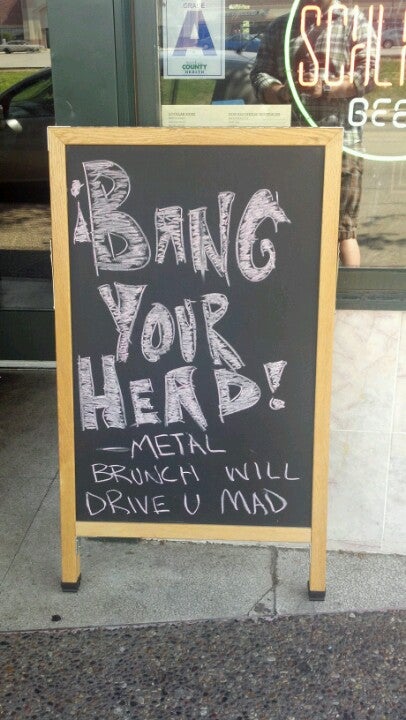 GRADE
A
COUNTY
HEALTH
SCHL
BEE
¡BANG
YOUR
HEAD!
—METAL
BRUNCH WILL
DRIVE U MAD